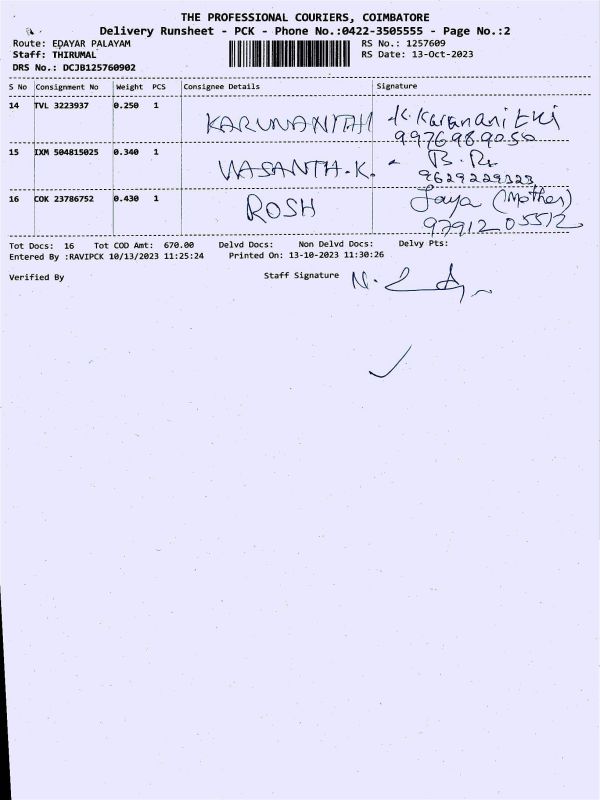 THE PROFESSIONAL COURIERS, COIMBATORE
Delivery Runsheet - PCK - Phone No.:0422-3505555 - Page No.:2
Route: EDAYAR PALAYAM RS No.: 1257609
Staff: THIRUMAL RS Date: 13-Oct-2023
DRS No.: DCJB125760902
S No Consignment No Weight PCS Consignee Details Signature
14 TVL 3223937 0.250 1
KARUNANITHI K. Karunanithi
9976989050
15 IXM 504815025 0.340 1
VASANTH.K. B.
9629229323
16 COK 23786752 0.430 1
ROSH Jaya (Mother)
9791205512
Tot Docs: 16 Tot COD Amt: 670.00 Delvd Docs: Non Delvd Docs: Delvy Pts:
Entered By :RAVIPCK 10/13/2023 11:25:24 Printed On: 13-10-2023 11:30:26
Verified By Staff Signature N.